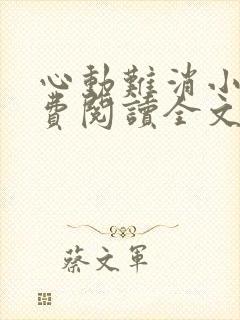 心動難消小
費閱讀全文
蔡文軍